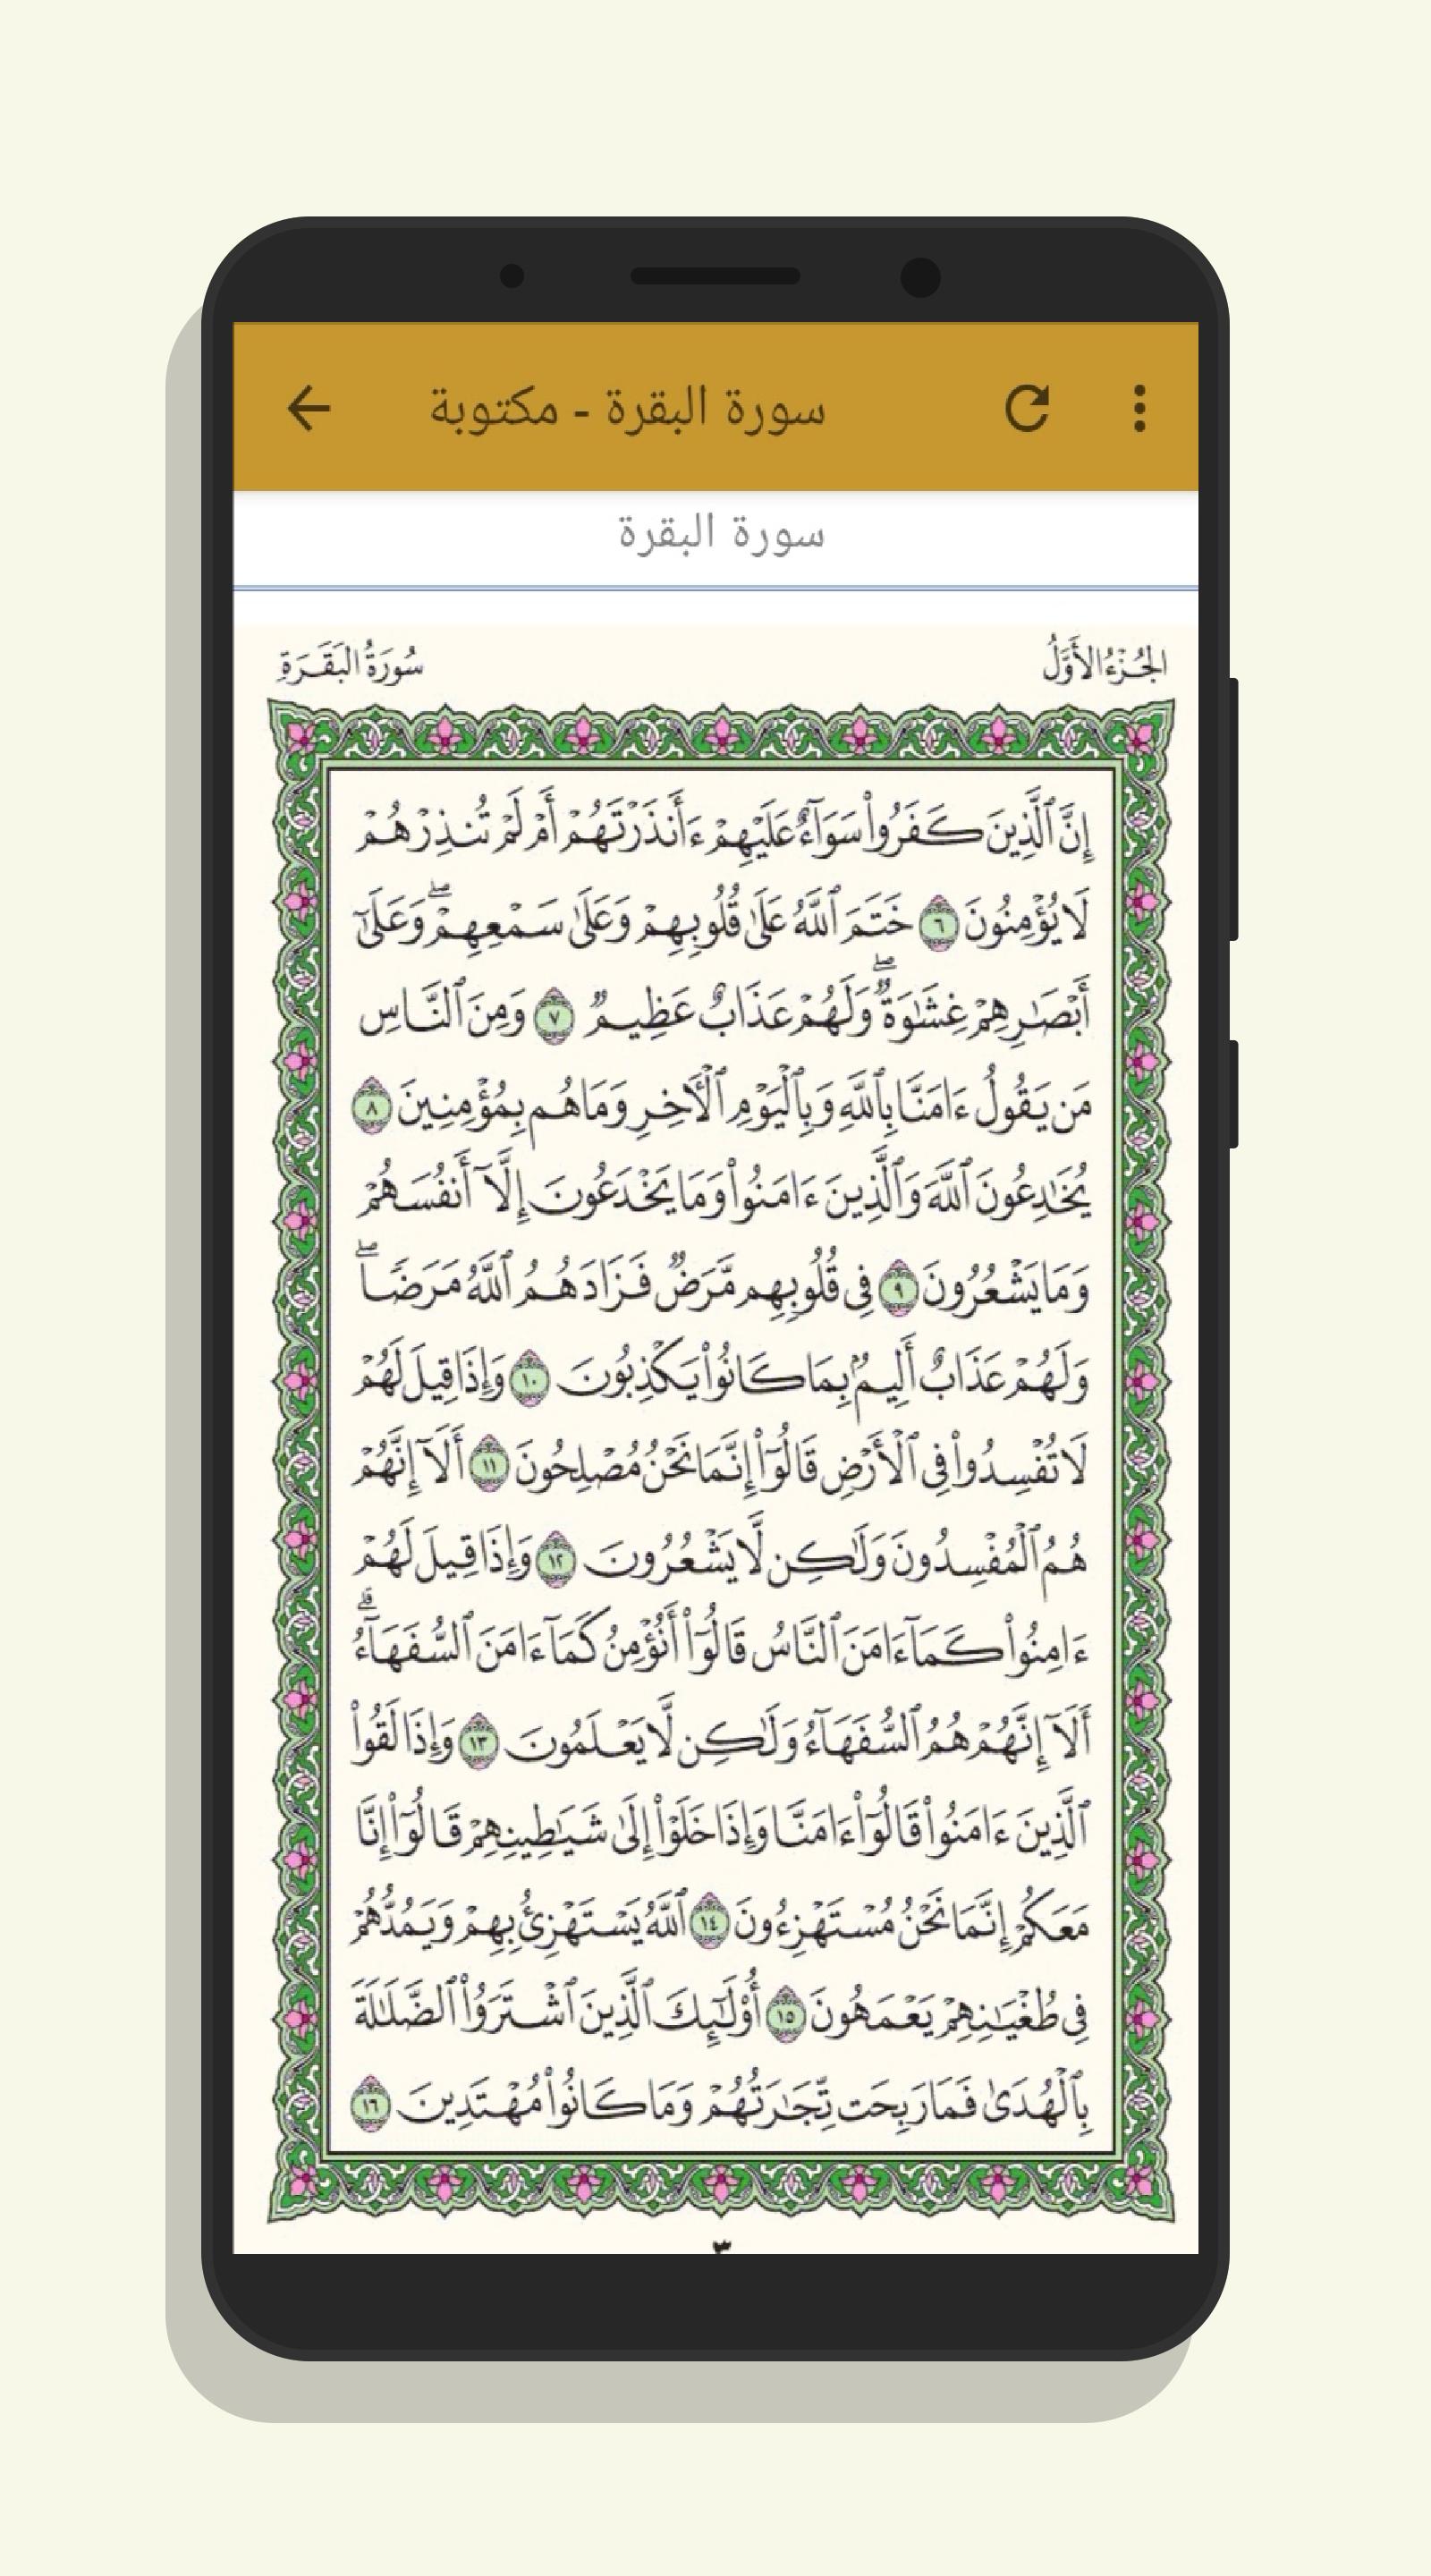 سورة البقرة - مكتوبة
سورة البقرة
الجُزْءُ الأَوَّلُ
سُورَةُ البَقَرَةِ
إِنَّ ٱلَّذِينَ كَفَرُوا۟ سَوَآءٌ عَلَيْهِمْ ءَأَنذَرْتَهُمْ أَمْ لَمْ تُنذِرْهُمْ
لَا يُؤْمِنُونَ ٦ خَتَمَ ٱللَّهُ عَلَىٰ قُلُوبِهِمْ وَعَلَىٰ سَمْعِهِمْ ۖ وَعَلَىٰٓ
أَبْصَـٰرِهِمْ غِشَـٰوَةٌ ۖ وَلَهُمْ عَذَابٌ عَظِيمٌ ٧ وَمِنَ ٱلنَّاسِ
مَن يَقُولُ ءَامَنَّا بِٱللَّهِ وَبِٱلْيَوْمِ ٱلْـَٔاخِرِ وَمَا هُم بِمُؤْمِنِينَ ٨
يُخَـٰدِعُونَ ٱللَّهَ وَٱلَّذِينَ ءَامَنُوا۟ وَمَا يَخْدَعُونَ إِلَّآ أَنفُسَهُمْ
وَمَا يَشْعُرُونَ ٩ فِى قُلُوبِهِم مَّرَضٌ فَزَادَهُمُ ٱللَّهُ مَرَضًا ۖ
وَلَهُمْ عَذَابٌ أَلِيمٌۢ بِمَا كَانُوا۟ يَكْذِبُونَ ١٠ وَإِذَا قِيلَ لَهُمْ
لَا تُفْسِدُوا۟ فِى ٱلْأَرْضِ قَالُوٓا۟ إِنَّمَا نَحْنُ مُصْلِحُونَ ١١ أَلَآ إِنَّهُمْ
هُمُ ٱلْمُفْسِدُونَ وَلَـٰكِن لَّا يَشْعُرُونَ ١٢ وَإِذَا قِيلَ لَهُمْ
ءَامِنُوا۟ كَمَآ ءَامَنَ ٱلنَّاسُ قَالُوٓا۟ أَنُؤْمِنُ كَمَآ ءَامَنَ ٱلسُّفَهَآءُ ۗ
أَلَآ إِنَّهُمْ هُمُ ٱلسُّفَهَآءُ وَلَـٰكِن لَّا يَعْلَمُونَ ١٣ وَإِذَا لَقُوا۟
ٱلَّذِينَ ءَامَنُوا۟ قَالُوٓا۟ ءَامَنَّا وَإِذَا خَلَوْا۟ إِلَىٰ شَيَـٰطِينِهِمْ قَالُوٓا۟ إِنَّا
مَعَكُمْ إِنَّمَا نَحْنُ مُسْتَهْزِءُونَ ١٤ ٱللَّهُ يَسْتَهْزِئُ بِهِمْ وَيَمُدُّهُمْ
فِى طُغْيَـٰنِهِمْ يَعْمَهُونَ ١٥ أُو۟لَـٰٓئِكَ ٱلَّذِينَ ٱشْتَرَوُا۟ ٱلضَّلَـٰلَةَ
بِٱلْهُدَىٰ فَمَا رَبِحَت تِّجَـٰرَتُهُمْ وَمَا كَانُوا۟ مُهْتَدِينَ ١٦
٣